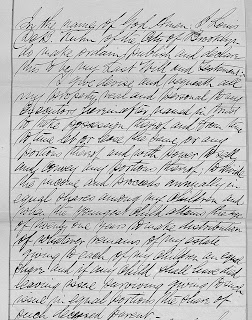 In the name of God Amen. I
of the City of Brooklyn
do make ordain publish and declare
this to be my Last Will and Testament.
I give devise and bequeath all
my property real and personal to my
Executor hereinafter named in trust
to take possession thereof and from time
to time let or lease the same or any
portions thereof and with power to sell
and convey any portion thereof, to divide
the income and proceeds annually in
equal shares among my children and
when the youngest child attains the age
of twenty one years to make distribution
of whatever remains of my estate
giving to each of my children an equal
share and if any child shall have died
leaving issue surviving giving to such
issue in equal portions the share of
such deceased parent.